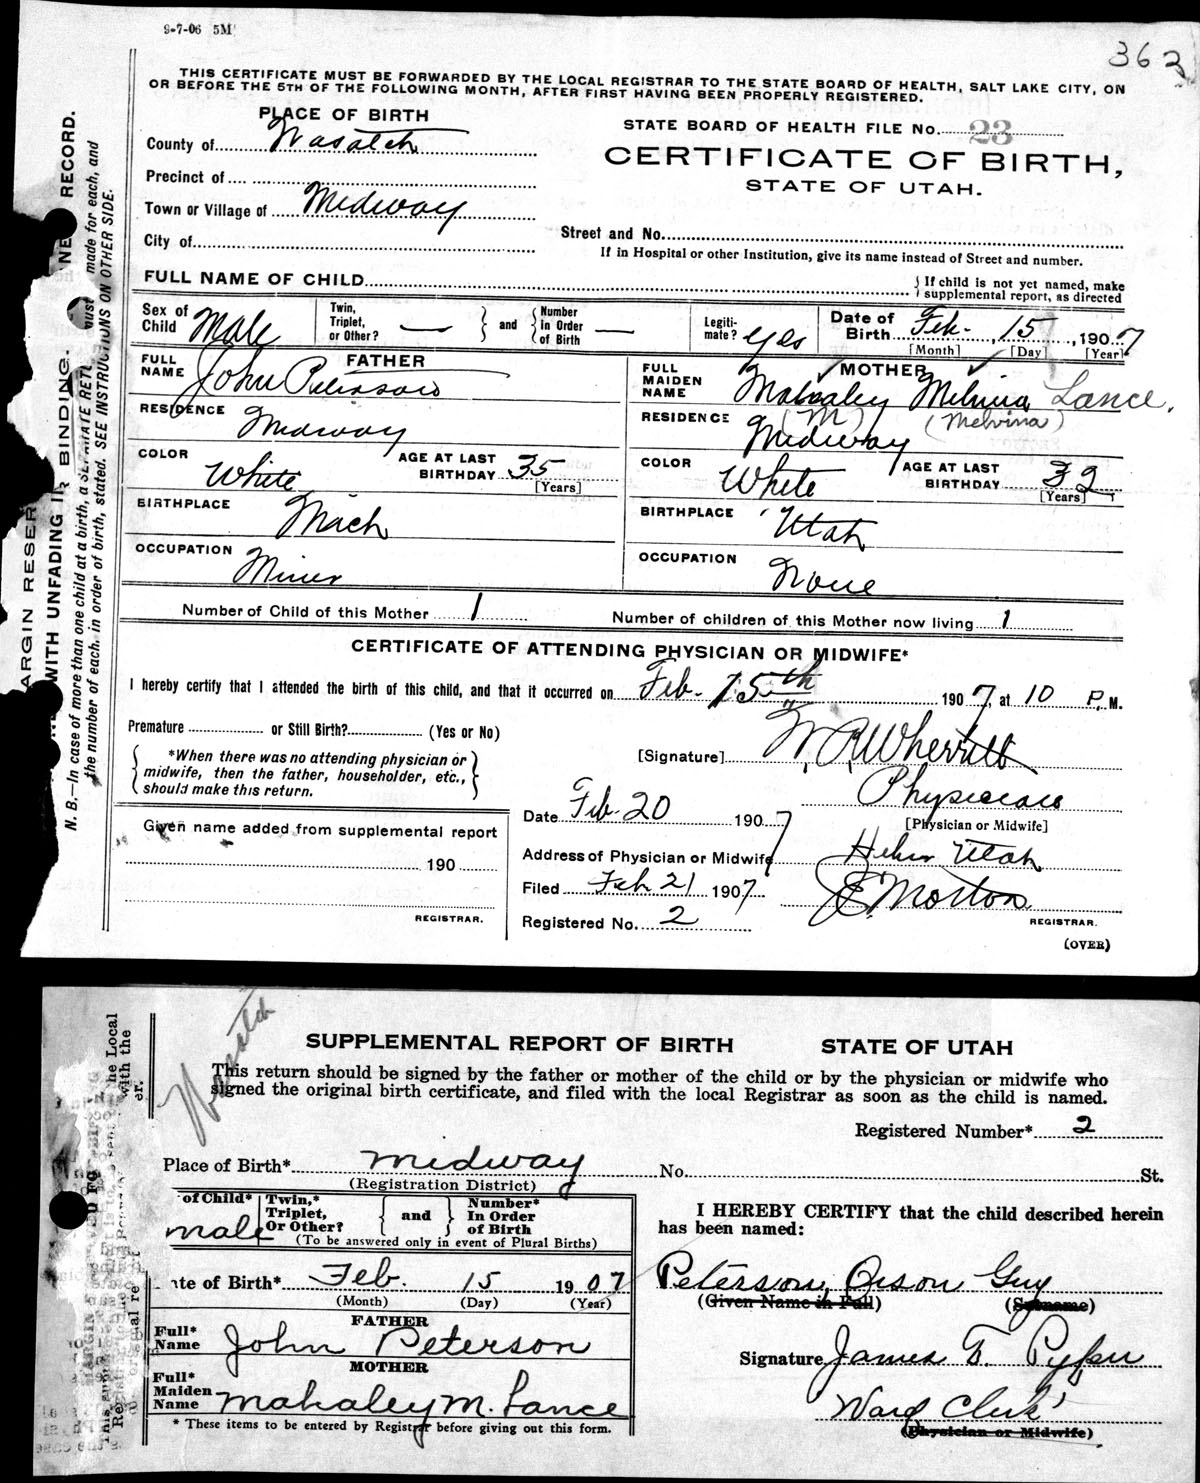 9-7-06 5M
362
THIS CERTIFICATE MUST BE FORWARDED BY THE LOCAL REGISTRAR TO THE STATE BOARD OF HEALTH, SALT LAKE CITY, ON
OR BEFORE THE 5TH OF THE FOLLOWING MONTH, AFTER FIRST HAVING BEEN PROPERLY REGISTERED.
PLACE OF BIRTH
STATE BOARD OF HEALTH FILE No. 23
County of Wasatch
CERTIFICATE OF BIRTH,
STATE OF UTAH.
Precinct of
Town or Village of Midway
City of
Street and No.
If in Hospital or other Institution, give its name instead of Street and number.
FULL NAME OF CHILD
If child is not yet named, make
supplemental report, as directed
Sex of Child Male
Twin, Triplet, or Other? —
and
Number In Order of Birth —
Legiti- mate? yes
Date of Birth Feb. 15, 1907
[Month] [Day] [Year]
FATHER
FULL NAME John Peterson
RESIDENCE Midway
COLOR White
AGE AT LAST BIRTHDAY 35
[Years]
BIRTHPLACE Mich
OCCUPATION Miner
MOTHER
FULL MAIDEN NAME Mahaley Melvina Lance.
(M) (Melvina)
RESIDENCE Midway
COLOR White
AGE AT LAST BIRTHDAY 32
[Years]
BIRTHPLACE Utah
OCCUPATION None
Number of Child of this Mother 1
Number of children of this Mother now living 1
CERTIFICATE OF ATTENDING PHYSICIAN OR MIDWIFE*
I hereby certify that I attended the birth of this child, and that it occurred on Feb. 15th 1907, at 10 P. M.
Premature or Still Birth? (Yes or No)
*When there was no attending physician or
midwife, then the father, householder, etc.,
should make this return.
[Signature] W. R. Wherritt
Physician
[Physician or Midwife]
Date Feb. 20 1907
Address of Physician or Midwife Heber Utah
Filed Feb 21 1907
J E Morton
REGISTRAR.
Registered No. 2
(OVER)
Given name added from supplemental report
190
REGISTRAR.
ARGIN RESER
BINDING.
WITH UNFADING IN
RECORD.
N. B.—In case of more than one child at a birth, a SEPARATE RETU must made for each, and
the number of each, in order of birth, stated. SEE INSTRUCTIONS ON OTHER SIDE.
Wasatch
SUPPLEMENTAL REPORT OF BIRTH STATE OF UTAH
This return should be signed by the father or mother of the child or by the physician or midwife who
signed the original birth certificate, and filed with the local Registrar as soon as the child is named.
Registered Number* 2
Place of Birth* Midway No. St.
(Registration District)
of Child* male
Twin,* Triplet, Or Other?
and
Number* In Order of Birth
(To be answered only in event of Plural Births)
te of Birth* Feb. 15 1907
(Month) (Day) (Year)
FATHER
Full* Name John Peterson
MOTHER
Full* Maiden Name Mahaley M. Lance
* These items to be entered by Registrar before giving out this form.
I HEREBY CERTIFY that the child described herein
has been named:
Peterson, Orson Guy
(Given Name in Full) (Surname)
Signature James T. Pyper
Ward Clerk
(Physician or Midwife)